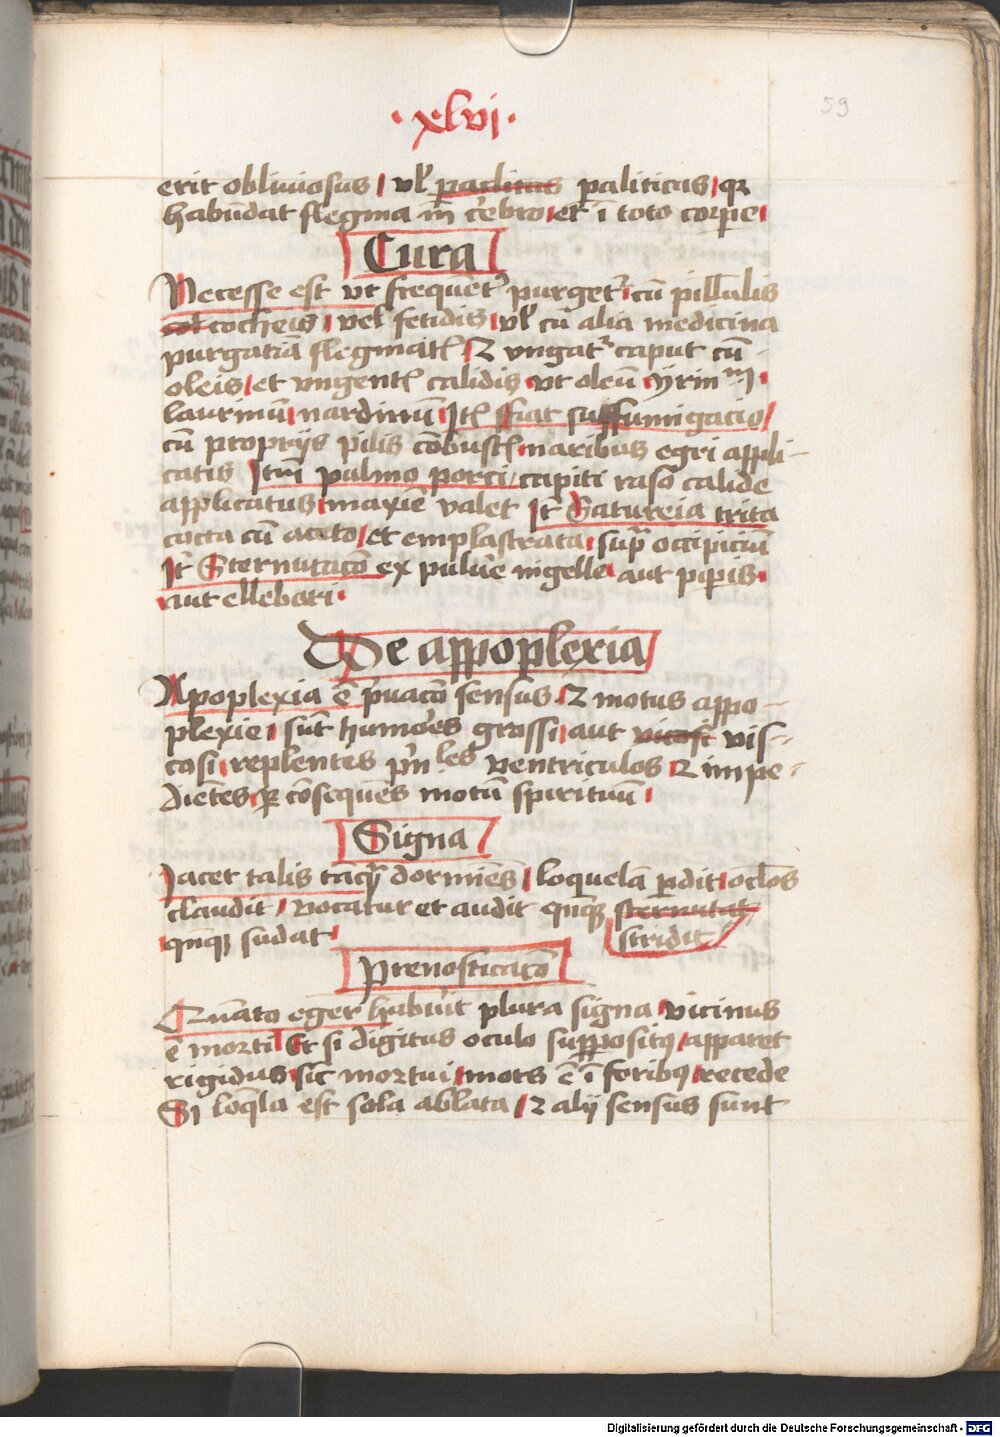 ·xlvi·
59
erit obliuiosus / vel paraliticus paliticus / qr
habundat flegma in cerebro et i toto corpe
Cura
Necesse est vt frequēter purgetur cū pillulis
cocheis / vel fetidis vel cū alia medicina
purgatiā flegmatis Et vngatr caput cū
oleis et vngentis calidis vt oleū yrinum
laurinū nardinū Itē fiat suffumigacio
cū proprijs pilis cōbustis naribus egri appli-
catis Item pulmo porci capiti raso calide
applicatus maxīe valet It Satureia trita
cocta cū aceto et emplastrata supra occipiciū
It Sternutacō ex puluere nigelle aut piperis
aut ellebori
De appoplexia
Apoplexia ē priuacō sensus Et motus appo-
plexie sūt humores grossi aut vis-
cosi replentes principales ventriculos et impe-
dientes per cōsequēs motū spirituū
Signa
Jacet talis tāquam dormiēs loquelā perdit oclos
claudit / vocatur et audit quinque sternutat
stridit
quinque sudat
Prenosticacō
Quāto eger habuerit plura signa vicinus
ē morti Et si digitus oculo suppositus apparet
rigidus sic mortui mors ē ī foribus recede
Si loquela est sola ablata / et alij sensus sunt
Digitalisierung gefördert durch die Deutsche Forschungsgemeinschaft - DFG